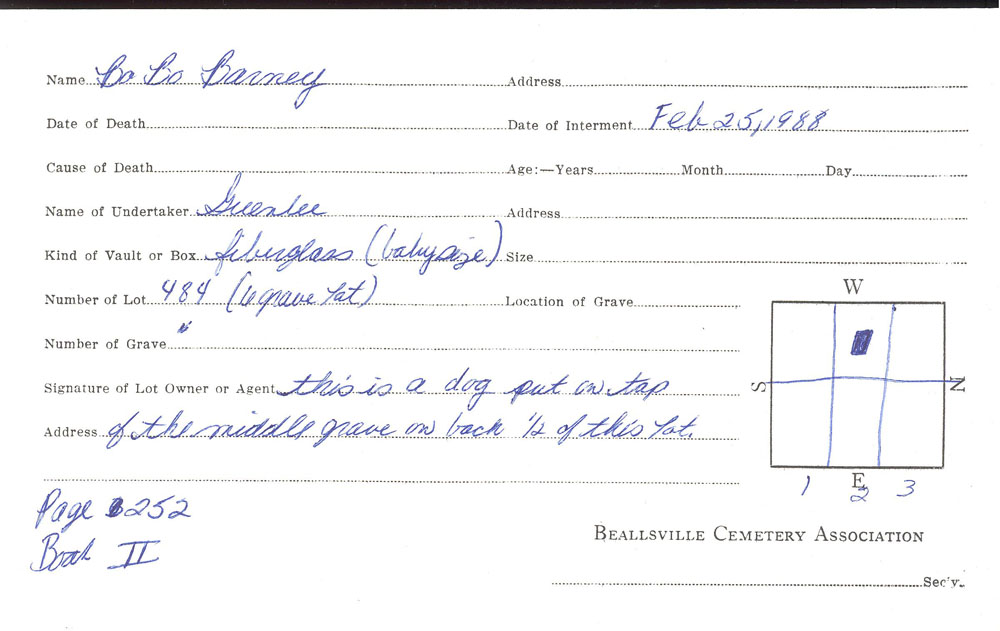 Name Bo Bo Barney Address
Date of Death Date of Interment Feb 25, 1988
Cause of Death Age:—Years Month Day
Name of Undertaker Greenlee Address
Kind of Vault or Box fiberglass (baby size) Size
Number of Lot 484 (6 grave lot) Location of Grave
Number of Grave "
Signature of Lot Owner or Agent this is a dog put on top
Address of the middle grave on back 1/2 of this lot.
W
S N
E
1 2 3
Page 252
Book II
BEALLSVILLE CEMETERY ASSOCIATION
Sec'y.